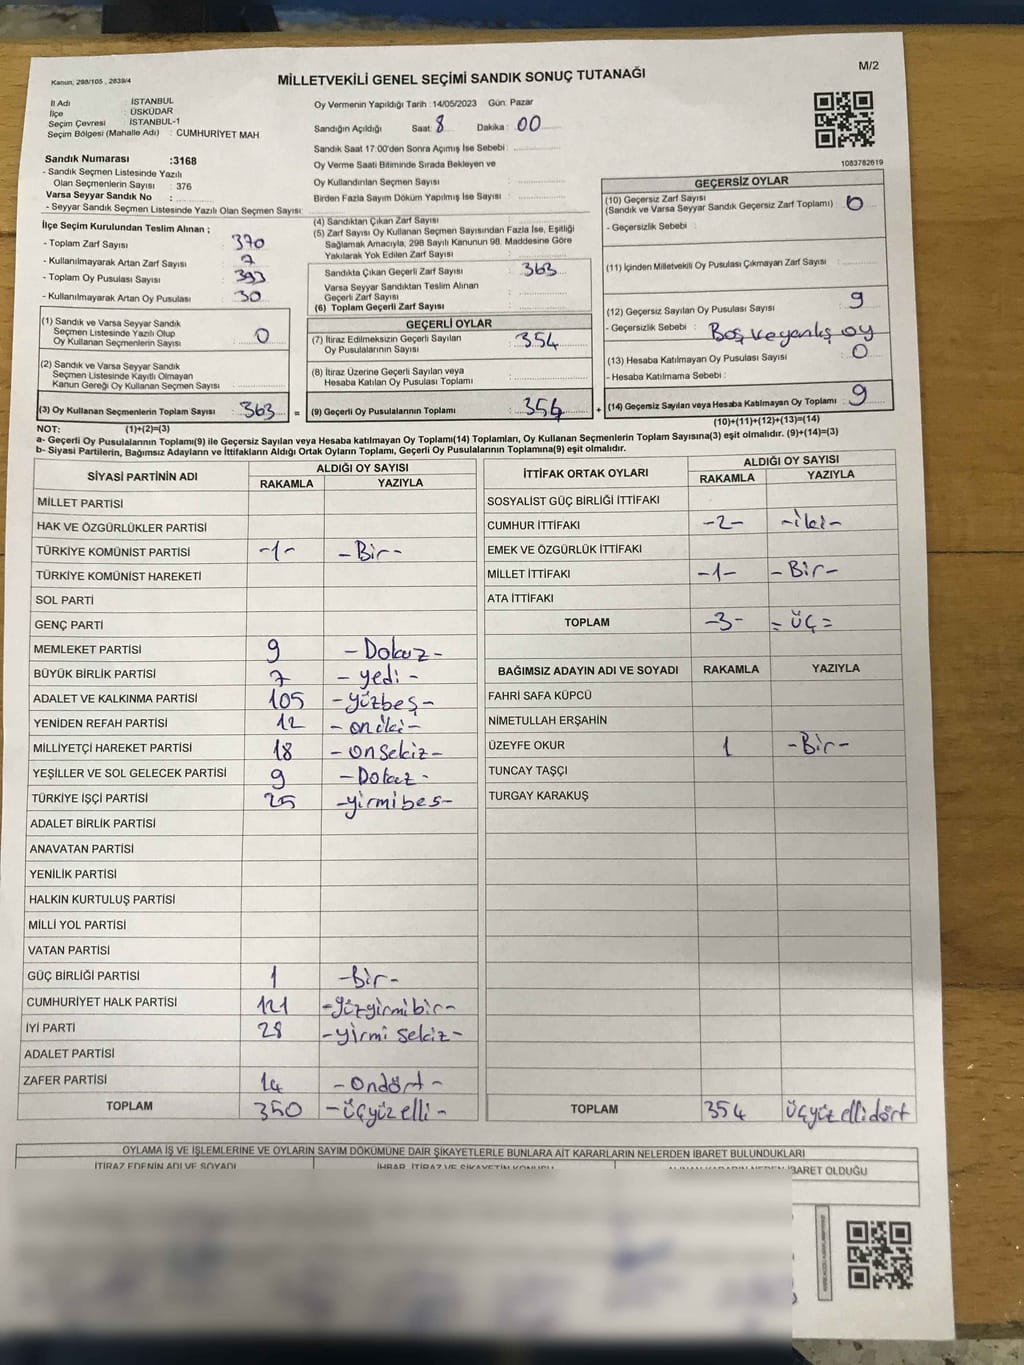 Kanun, 298/105 , 2839/4
MİLLETVEKİLİ GENEL SEÇİMİ SANDIK SONUÇ TUTANAĞI
M/2
İl Adı : İSTANBUL
İlçe : ÜSKÜDAR
Seçim Çevresi : İSTANBUL-1
Seçim Bölgesi (Mahalle Adı) : CUMHURİYET MAH
Sandık Numarası :3168
- Sandık Seçmen Listesinde Yazılı
Olan Seçmenlerin Sayısı : 376
Varsa Seyyar Sandık No :
- Seyyar Sandık Seçmen Listesinde Yazılı Olan Seçmen Sayısı:
Oy Vermenin Yapıldığı Tarih :14/05/2023 Gün: Pazar
Sandığın Açıldığı Saat: 8 Dakika : 00
Sandık Saat 17:00'den Sonra Açımış İse Sebebi :
Oy Verme Saati Bitiminde Sırada Bekleyen ve
Oy Kullandırılan Seçmen Sayısı :
Birden Fazla Sayım Döküm Yapılmış İse Sayısı :
1083782619
İlçe Seçim Kurulundan Teslim Alınan ;
- Toplam Zarf Sayısı : 370
- Kullanılmayarak Artan Zarf Sayısı : 7
- Toplam Oy Pusulası Sayısı : 393
- Kullanılmayarak Artan Oy Pusulası : 30
(1) Sandık ve Varsa Seyyar Sandık
Seçmen Listesinde Yazılı Olup
Oy Kullanan Seçmenlerin Sayısı : 0
(2) Sandık ve Varsa Seyyar Sandık
Seçmen Listesinde Kayıtlı Olmayan
Kanun Gereği Oy Kullanan Seçmen Sayısı :
(3) Oy Kullanan Seçmenlerin Toplam Sayısı : 363 =
(4) Sandıktan Çıkan Zarf Sayısı :
(5) Zarf Sayısı Oy Kullanan Seçmen Sayısından Fazla İse, Eşitliği
Sağlamak Amacıyla, 298 Sayılı Kanunun 98. Maddesine Göre
Yakılarak Yok Edilen Zarf Sayısı :
Sandıkta Çıkan Geçerli Zarf Sayısı : 363
Varsa Seyyar Sandıktan Teslim Alınan
Geçerli Zarf Sayısı :
(6) Toplam Geçerli Zarf Sayısı :
GEÇERLİ OYLAR
(7) İtiraz Edilmeksizin Geçerli Sayılan
Oy Pusulalarının Sayısı : 354
(8) İtiraz Üzerine Geçerli Sayılan veya
Hesaba Katılan Oy Pusulası Toplamı :
(9) Geçerli Oy Pusulalarının Toplamı : 354 +
GEÇERSİZ OYLAR
(10) Geçersiz Zarf Sayısı
(Sandık ve Varsa Seyyar Sandık Geçersiz Zarf Toplamı) : 0
- Geçersizlik Sebebi :
(11) İçinden Milletvekili Oy Pusulası Çıkmayan Zarf Sayısı :
(12) Geçersiz Sayılan Oy Pusulası Sayısı : 9
- Geçersizlik Sebebi : Boş ve yanlış oy
(13) Hesaba Katılmayan Oy Pusulası Sayısı : 0
- Hesaba Katılmama Sebebi :
(14) Geçersiz Sayılan veya Hesaba Katılmayan Oy Toplamı : 9
(10)+(11)+(12)+(13)=(14)
NOT: (1)+(2)=(3)
a- Geçerli Oy Pusulalarının Toplamı(9) ile Geçersiz Sayılan veya Hesaba katılmayan Oy Toplamı(14) Toplamları, Oy Kullanan Seçmenlerin Toplam Sayısına(3) eşit olmalıdır. (9)+(14)=(3)
b- Siyasi Partilerin, Bağımsız Adayların ve İttifakların Aldığı Ortak Oyların Toplamı, Geçerli Oy Pusulalarının Toplamına(9) eşit olmalıdır.
SİYASİ PARTİNİN ADI ALDIĞI OY SAYISI
RAKAMLA YAZIYLA
MİLLET PARTİSİ
HAK VE ÖZGÜRLÜKLER PARTİSİ
TÜRKİYE KOMÜNİST PARTİSİ -1- -Bir-
TÜRKİYE KOMÜNİST HAREKETİ
SOL PARTİ
GENÇ PARTİ
MEMLEKET PARTİSİ 9 -Dokuz-
BÜYÜK BİRLİK PARTİSİ 7 -yedi-
ADALET VE KALKINMA PARTİSİ 105 -yüzbeş-
YENİDEN REFAH PARTİSİ 12 -oniki-
MİLLİYETÇİ HAREKET PARTİSİ 18 -onsekiz-
YEŞİLLER VE SOL GELECEK PARTİSİ 9 -Dokuz-
TÜRKİYE İŞÇİ PARTİSİ 25 -yirmibes-
ADALET BİRLİK PARTİSİ
ANAVATAN PARTİSİ
YENİLİK PARTİSİ
HALKIN KURTULUŞ PARTİSİ
MİLLİ YOL PARTİSİ
VATAN PARTİSİ
GÜÇ BİRLİĞİ PARTİSİ 1 -Bir-
CUMHURİYET HALK PARTİSİ 121 -yüzyirmibir-
İYİ PARTİ 28 -yirmi sekiz-
ADALET PARTİSİ
ZAFER PARTİSİ 14 -Ondört-
TOPLAM 350 -üçyüzelli-
İTTİFAK ORTAK OYLARI ALDIĞI OY SAYISI
RAKAMLA YAZIYLA
SOSYALİST GÜÇ BİRLİĞİ İTTİFAKI
CUMHUR İTTİFAKI -2- -iki-
EMEK VE ÖZGÜRLÜK İTTİFAKI
MİLLET İTTİFAKI -1- -Bir-
ATA İTTİFAKI
TOPLAM -3- = üÇ =
BAĞIMSIZ ADAYIN ADI VE SOYADI RAKAMLA YAZIYLA
FAHRİ SAFA KÜPCÜ
NİMETULLAH ERŞAHİN
ÜZEYFE OKUR 1 -Bir-
TUNCAY TAŞÇI
TURGAY KARAKUŞ
TOPLAM 354 üçyüzellidört
OYLAMA İŞ VE İŞLEMLERİNE VE OYLARIN SAYIM DÖKÜMÜNE DAİR ŞİKAYETLERLE BUNLARA AİT KARARLARIN NELERDEN İBARET BULUNDUKLARI
İTİRAZ EDENİN ADI VE SOYADI
İHBAR, İTİRAZ VE ŞİKAYETİN KONUSU
İBARET OLDUĞU